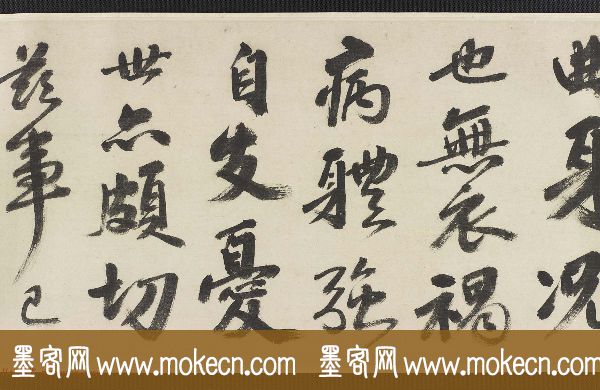 身况
也無衣褐
病體強
自支憂
世亦頗切
兹事已
墨客网 www.mokecn.com 墨客网 www.mokecn.com